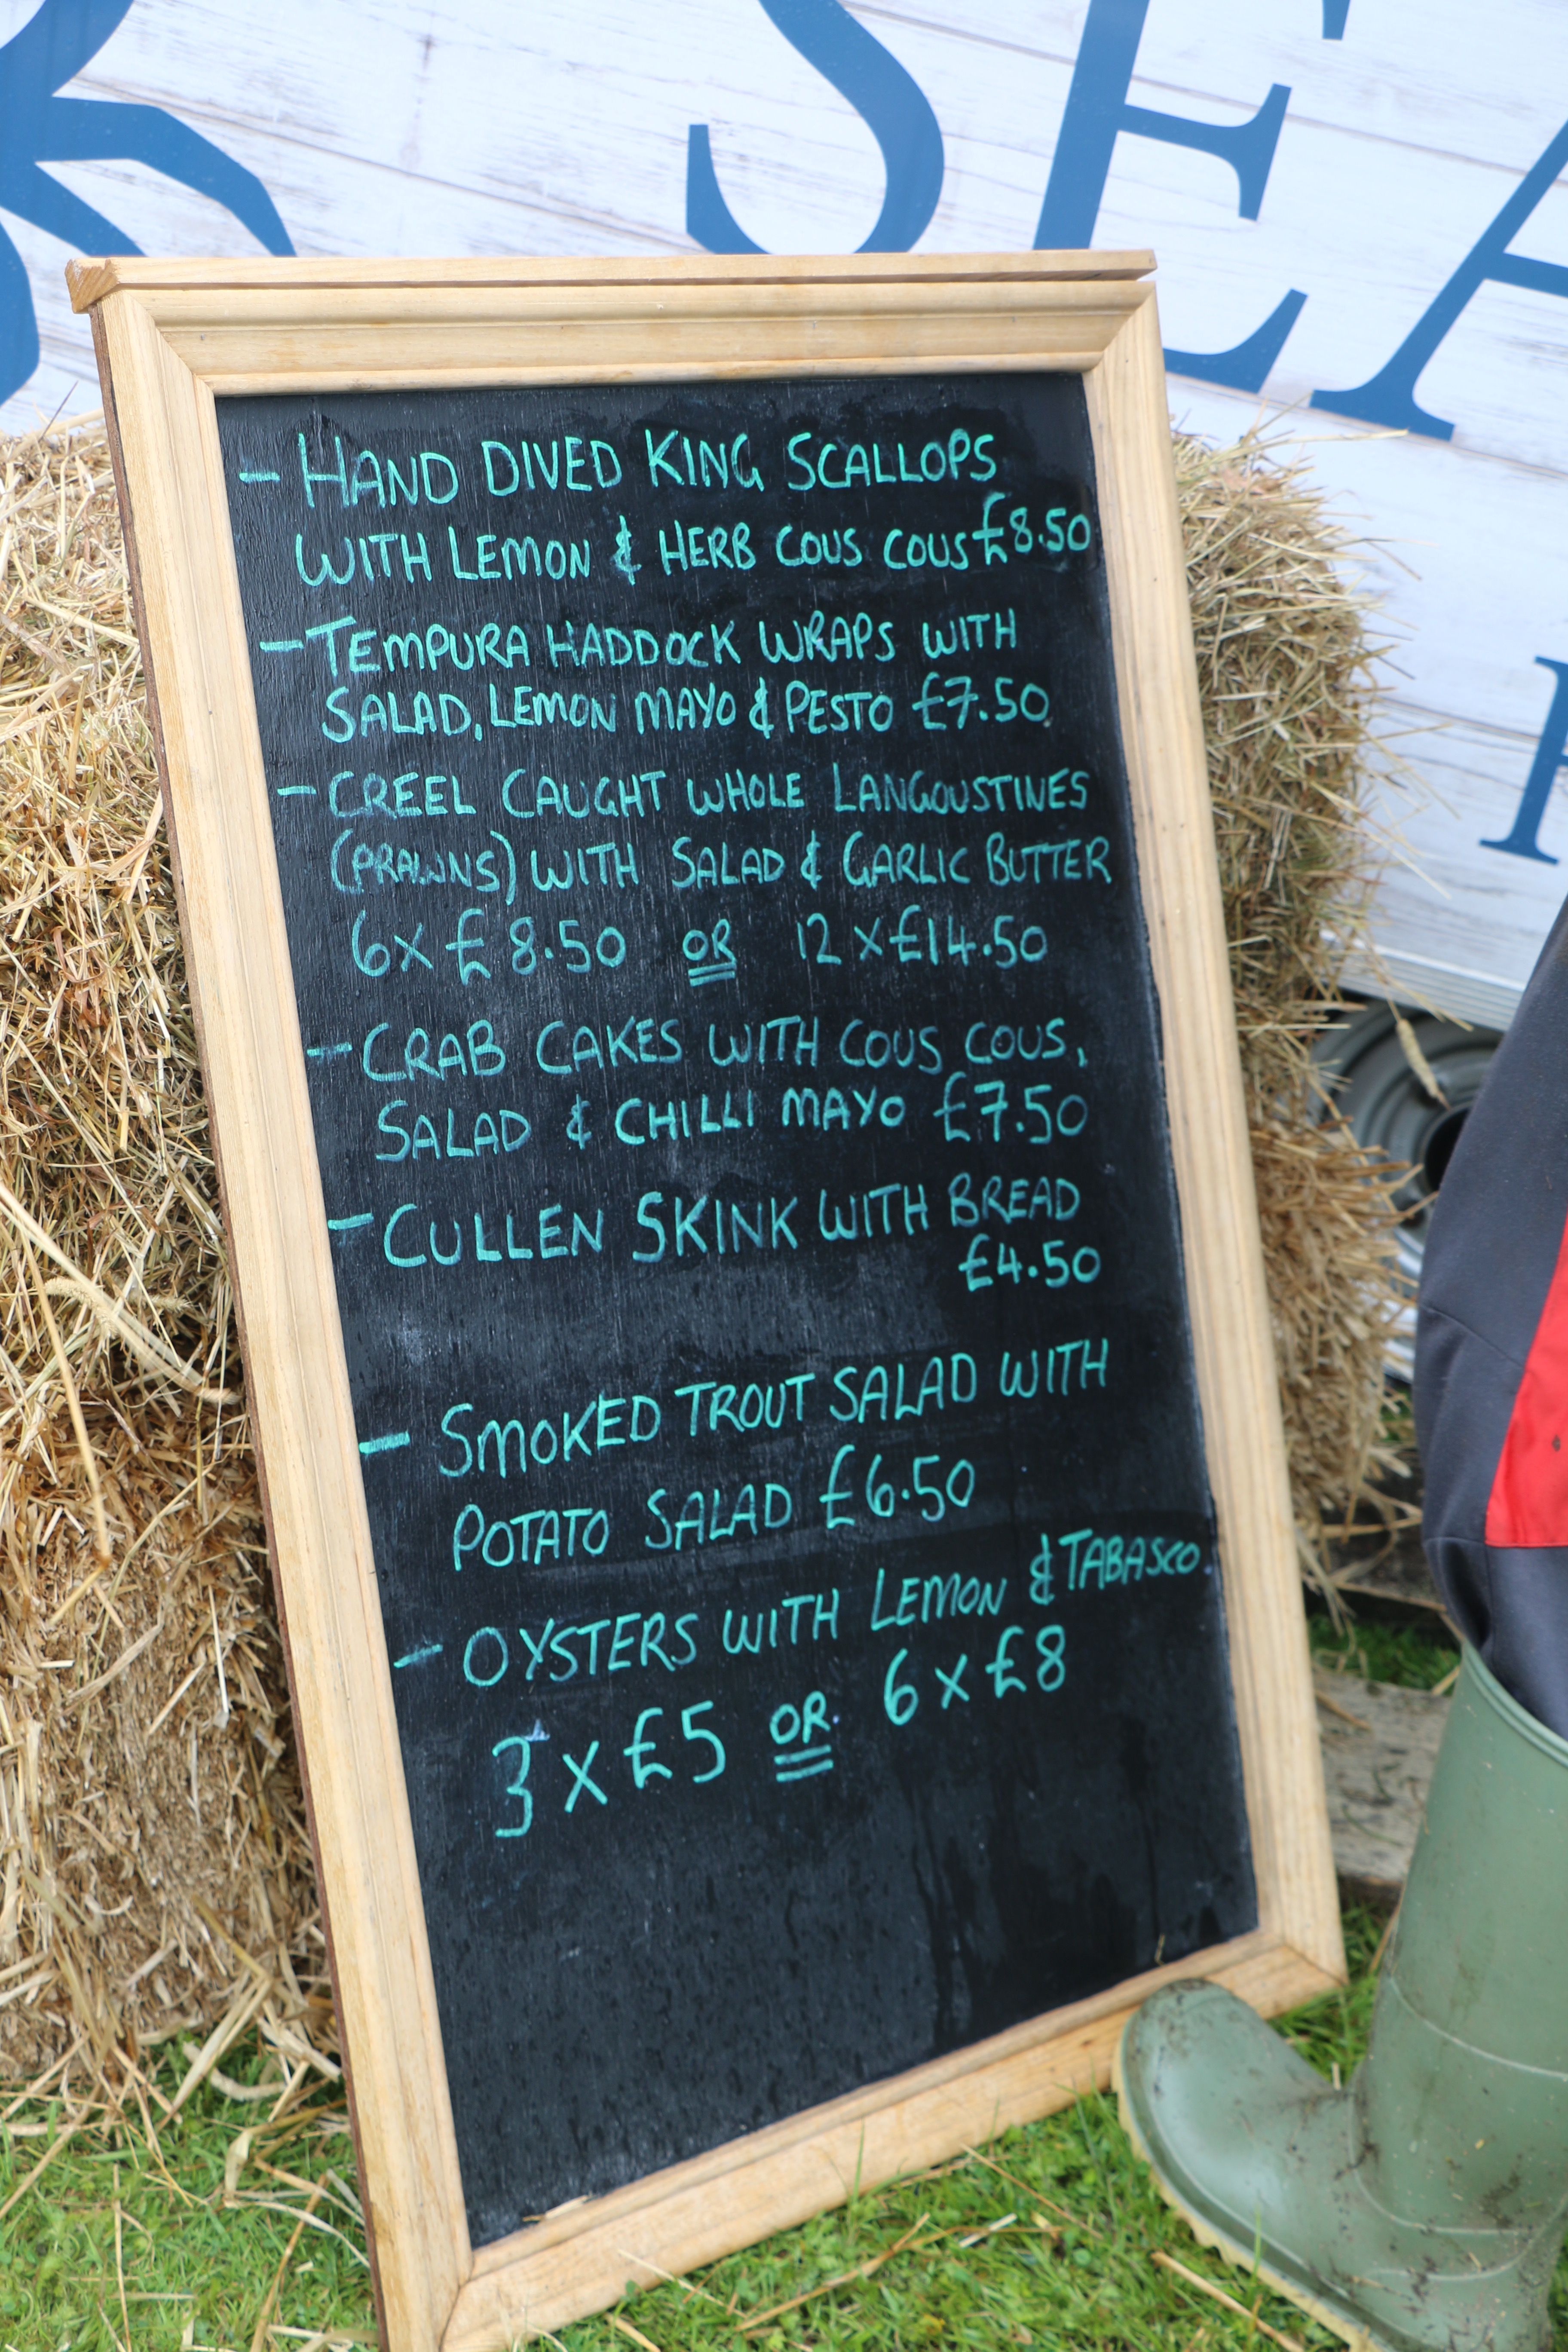 SEA
- HAND DIVED KING SCALLOPS
WITH LEMON & HERB COUS COUS £8.50
- TEMPURA HADDOCK WRAPS WITH
SALAD, LEMON MAYO & PESTO £7.50
- CREEL CAUGHT WHOLE LANGOUSTINES
(PRAWNS) WITH SALAD & GARLIC BUTTER
6 x £8.50 OR 12 x £14.50
- CRAB CAKES WITH COUS COUS,
SALAD & CHILLI MAYO £7.50
- CULLEN SKINK WITH BREAD
£4.50
- SMOKED TROUT SALAD WITH
POTATO SALAD £6.50
- OYSTERS WITH LEMON & TABASCO.
3 x £5 OR 6 x £8